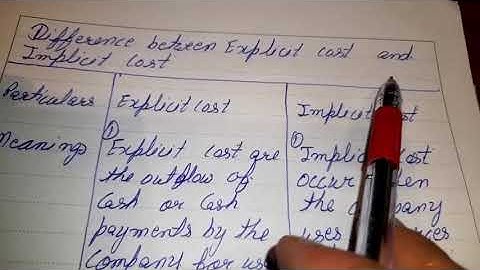 Difference between Explicit cost and
Implicit cost
Particulars Explicit cost Implicit cost
Meanings ① Explicit cost are
the outflow of
cash or cash
payments by the
company for use
① Implicit cost
occur
the company
uses